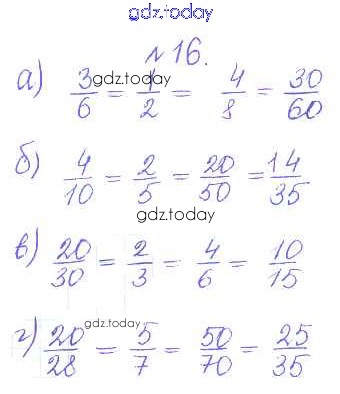 gdz.today
№16.
а) 3/6 = 1/2 = 4/8 = 30/60
gdz.today
б) 4/10 = 2/5 = 20/50 = 14/35
gdz.today
в) 20/30 = 2/3 = 4/6 = 10/15
г) 20/28 = 5/7 = 50/70 = 25/35
gdz.today